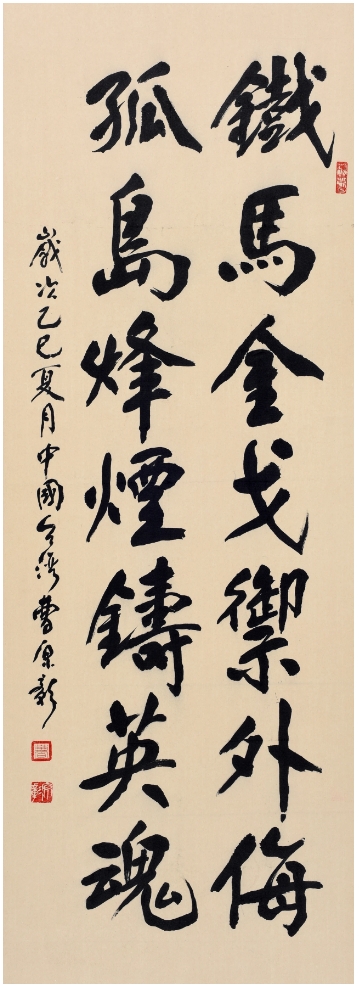 鐵馬金戈禦外侮
孤島烽煙鑄英魂
歲次乙巳夏月中國台灣曹原彰